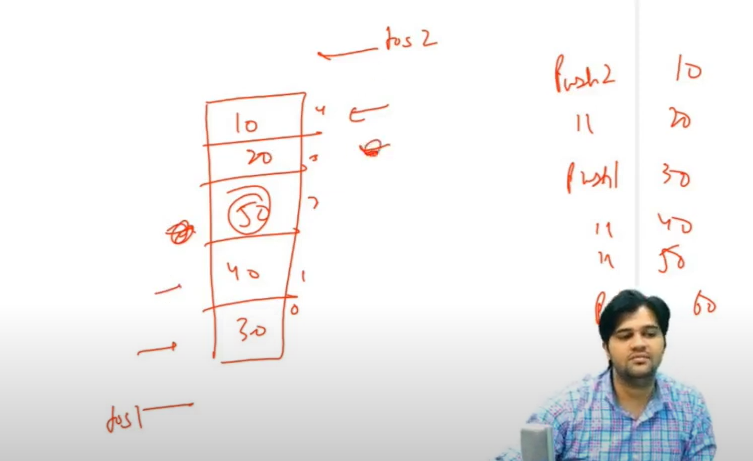 tos2
10
4
20
3
50
2
40
1
0
30
tos1
Push2 10
11 20
Push1 30
11 40
11 50
P 60